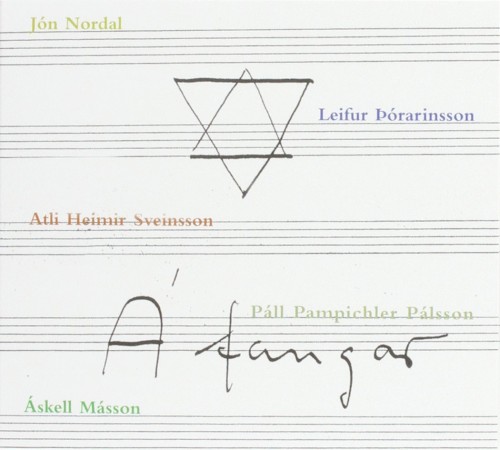 Jón Nordal
Leifur Þórarinsson
Atli Heimir Sveinsson
Páll Pampichler Pálsson
Áfangar
Áskell Másson